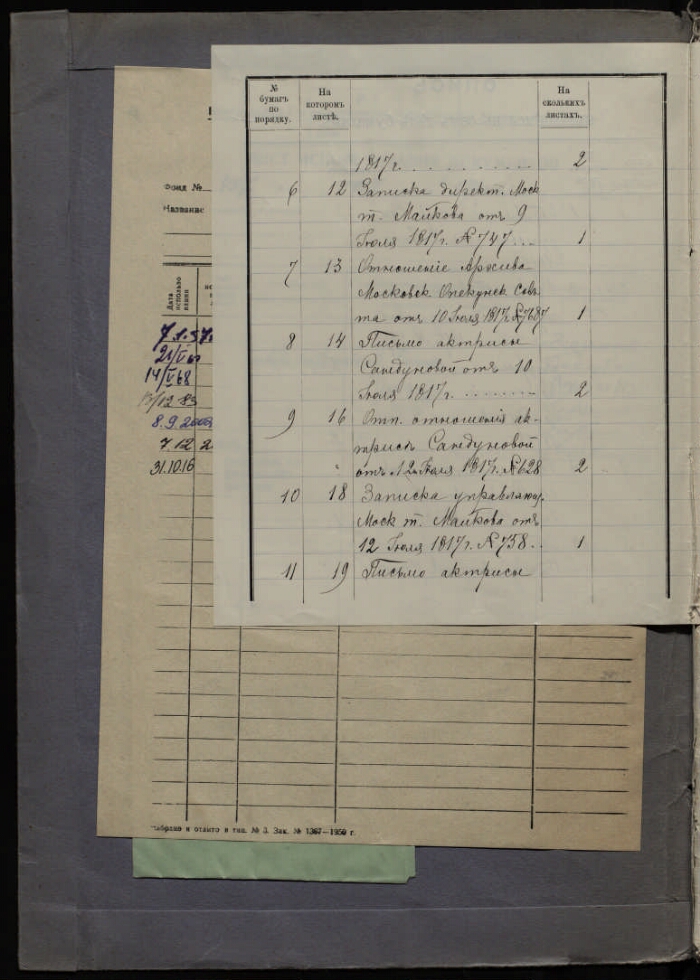 № бумагъ по порядку. На которомъ листѣ. На сколькихъ листахъ.
1817 г. . . . . . . . . . . 2
6 12 Записка директ. Моск
т. Майкова отъ 9
Іюля 1817 г. № 747 . . . 1
7 13 Отношеніе Архива
Московск Опекунск Совѣ
та отъ 10 Іюля 1817 г. № 7687 1
8 14 Письмо актрисы
Сандуновой отъ 10
Іюля 1817 г. . . . . . . . . 2
9 16 Отп. отношенія ак-
трисѣ Сандуновой
отъ 12 Іюля 1817 г. № 628 2
10 18 Записка управляющ.
Моск т. Майкова отъ
12 Іюля 1817 г. № 758 . . 1
11 19 Письмо актрисы
Фонд №
Название
Дата использо вания
7.1.57г.
14/V 68
8.9.2003
7.12 2
31.10.16
Набрано и отлито в тип. № 3. Зак. № 1367—1950 г.